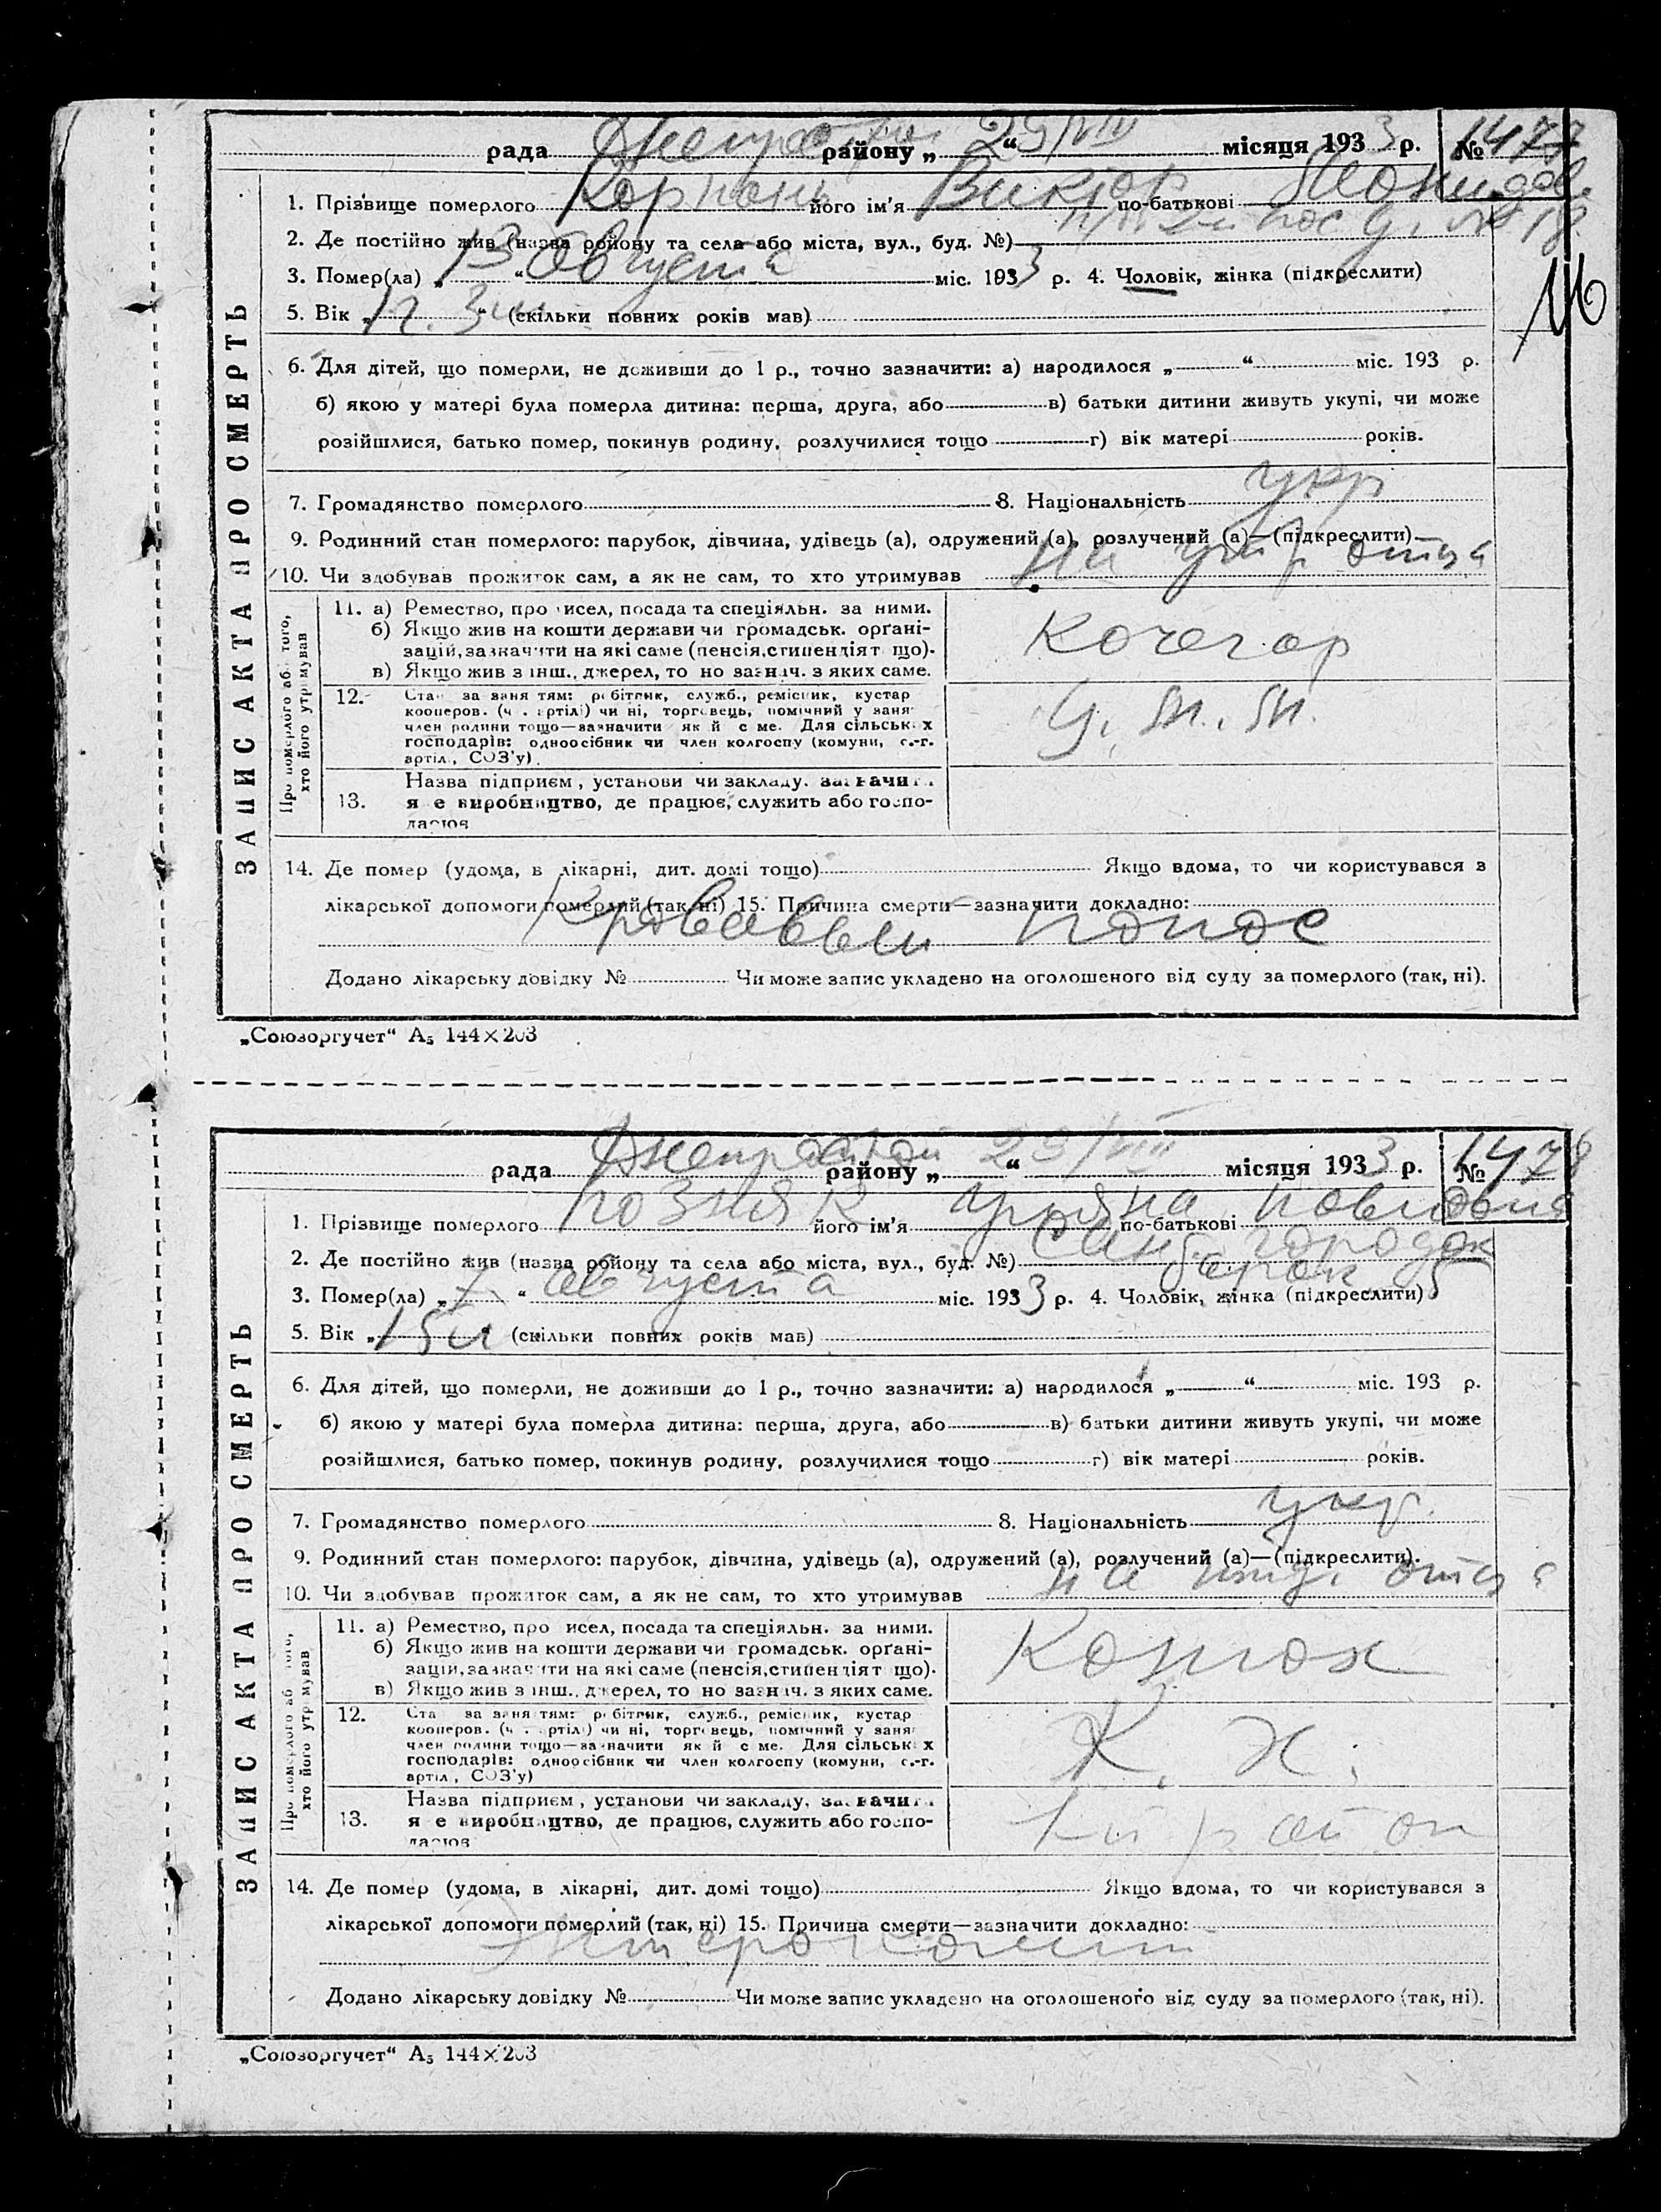 рада Днепрастрой району „ 29/VIII “ місяця 1933 р. № 1477
1. Прізвище померлого його ім'я Виктор по-батькові
2. Де постійно жив (назва ройону та села або міста, вул., буд. №)
3. Помер(ла) „ 13 “ Августа міс. 1933 р. 4. Чоловік, жінка (підкреслити)
5. Вік „ “ (скільки повних років мав)
6. Для дітей, що померли, не доживши до 1 р., точно зазначити: а) народилося „ “ міс. 193 р.
б) якою у матері була померла дитина: перша, друга, або в) батьки дитини живуть укупі, чи може
розійшлися, батько помер, покинув родину, розлучилися тощо г) вік матері років.
7. Громадянство померлого 8. Національність укр
9. Родинний стан померлого: парубок, дівчина, удівець (а), одружений (а), розлучений (а)—(підкреслити).
10. Чи здобував прожиток сам, а як не сам, то хто утримував на отца
ЗАПИС АКТА ПРО СМЕРТЬ
Про померлого або того,
хто його утримував
11. а) Ремество, про исел, посада та спеціяльн. за ними.
б) Якщо жив на кошти держави чи громадськ. орґані-
зацій, зазначити на які саме (пенсія, стипендіят що).
в) Якщо жив з інш., джерел, то но зазнач. з яких саме.
Кочегар
12. Стан за заня тям: робітник, служб., ремісник, кустар
кооперов. (ч . артілі) чи ні, торговець, помічний у заня
член родини тощо—зазначити як й с ме. Для сільськ х
господарів: одноосібник чи член колгоспу (комуни, с.-г.
артіл , СОЗ'у)
13. Назва підприєм , установи чи закладу, зазначити
я е виробництво, де працює, служить або госпо-
дарює
14. Де помер (удома, в лікарні, дит. домі тощо) Якщо вдома, то чи користувався з
лікарської допомоги померлий (так, ні) 15. Причина смерти—зазначити докладно:
Кровавый понос
Додано лікарську довідку № Чи може запис укладено на оголошеного від суду за померлого (так, ні).
„Союзоргучет“ А₅ 144×203
116
рада Днепрастрой району „ 29/VIII “ місяця 1933 р. № 1478
1. Прізвище померлого Позняк його ім'я по-батькові
2. Де постійно жив (назва ройону та села або міста, вул., буд. №) городок
барак 5
3. Помер(ла) „ 7 “ августа міс. 1933 р. 4. Чоловік, жінка (підкреслити)
5. Вік „ “ (скільки повних років мав)
6. Для дітей, що померли, не доживши до 1 р., точно зазначити: а) народилося „ “ міс. 193 р.
б) якою у матері була померла дитина: перша, друга, або в) батьки дитини живуть укупі, чи може
розійшлися, батько помер, покинув родину, розлучилися тощо г) вік матері років.
7. Громадянство померлого 8. Національність укр.
9. Родинний стан померлого: парубок, дівчина, удівець (а), одружений (а), розлучений (а)—(підкреслити).
10. Чи здобував прожиток сам, а як не сам, то хто утримував на ижд. отца
ЗАПИС АКТА ПРО СМЕРТЬ
Про померлого або того,
хто його утримував
11. а) Ремество, про исел, посада та спеціяльн. за ними.
б) Якщо жив на кошти держави чи громадськ. орґані-
зацій, зазначити на які саме (пенсія, стипендіят що).
в) Якщо жив з інш., джерел, то но зазнач. з яких саме.
12. Ста за заня тям: робітник, служб., ремісник, кустар
кооперов. (ч . артілі) чи ні, торговець, помічний у заня
член родини тощо—зазначити як й с ме. Для сільськ х
господарів: одноосібник чи член колгоспу (комуни, с.-г.
артіл , СОЗ'у)
К. Х.
13. Назва підприєм , установи чи закладу, зазначити
я е виробництво, де працює, служить або госпо-
дарює
1-й район
14. Де помер (удома, в лікарні, дит. домі тощо) Якщо вдома, то чи користувався з
лікарської допомоги померлий (так, ні) 15. Причина смерти—зазначити докладно:
Энтероколит
Додано лікарську довідку № Чи може запис укладено на оголошеного від суду за померлого (так, ні).
„Союзоргучет“ А₅ 144×203